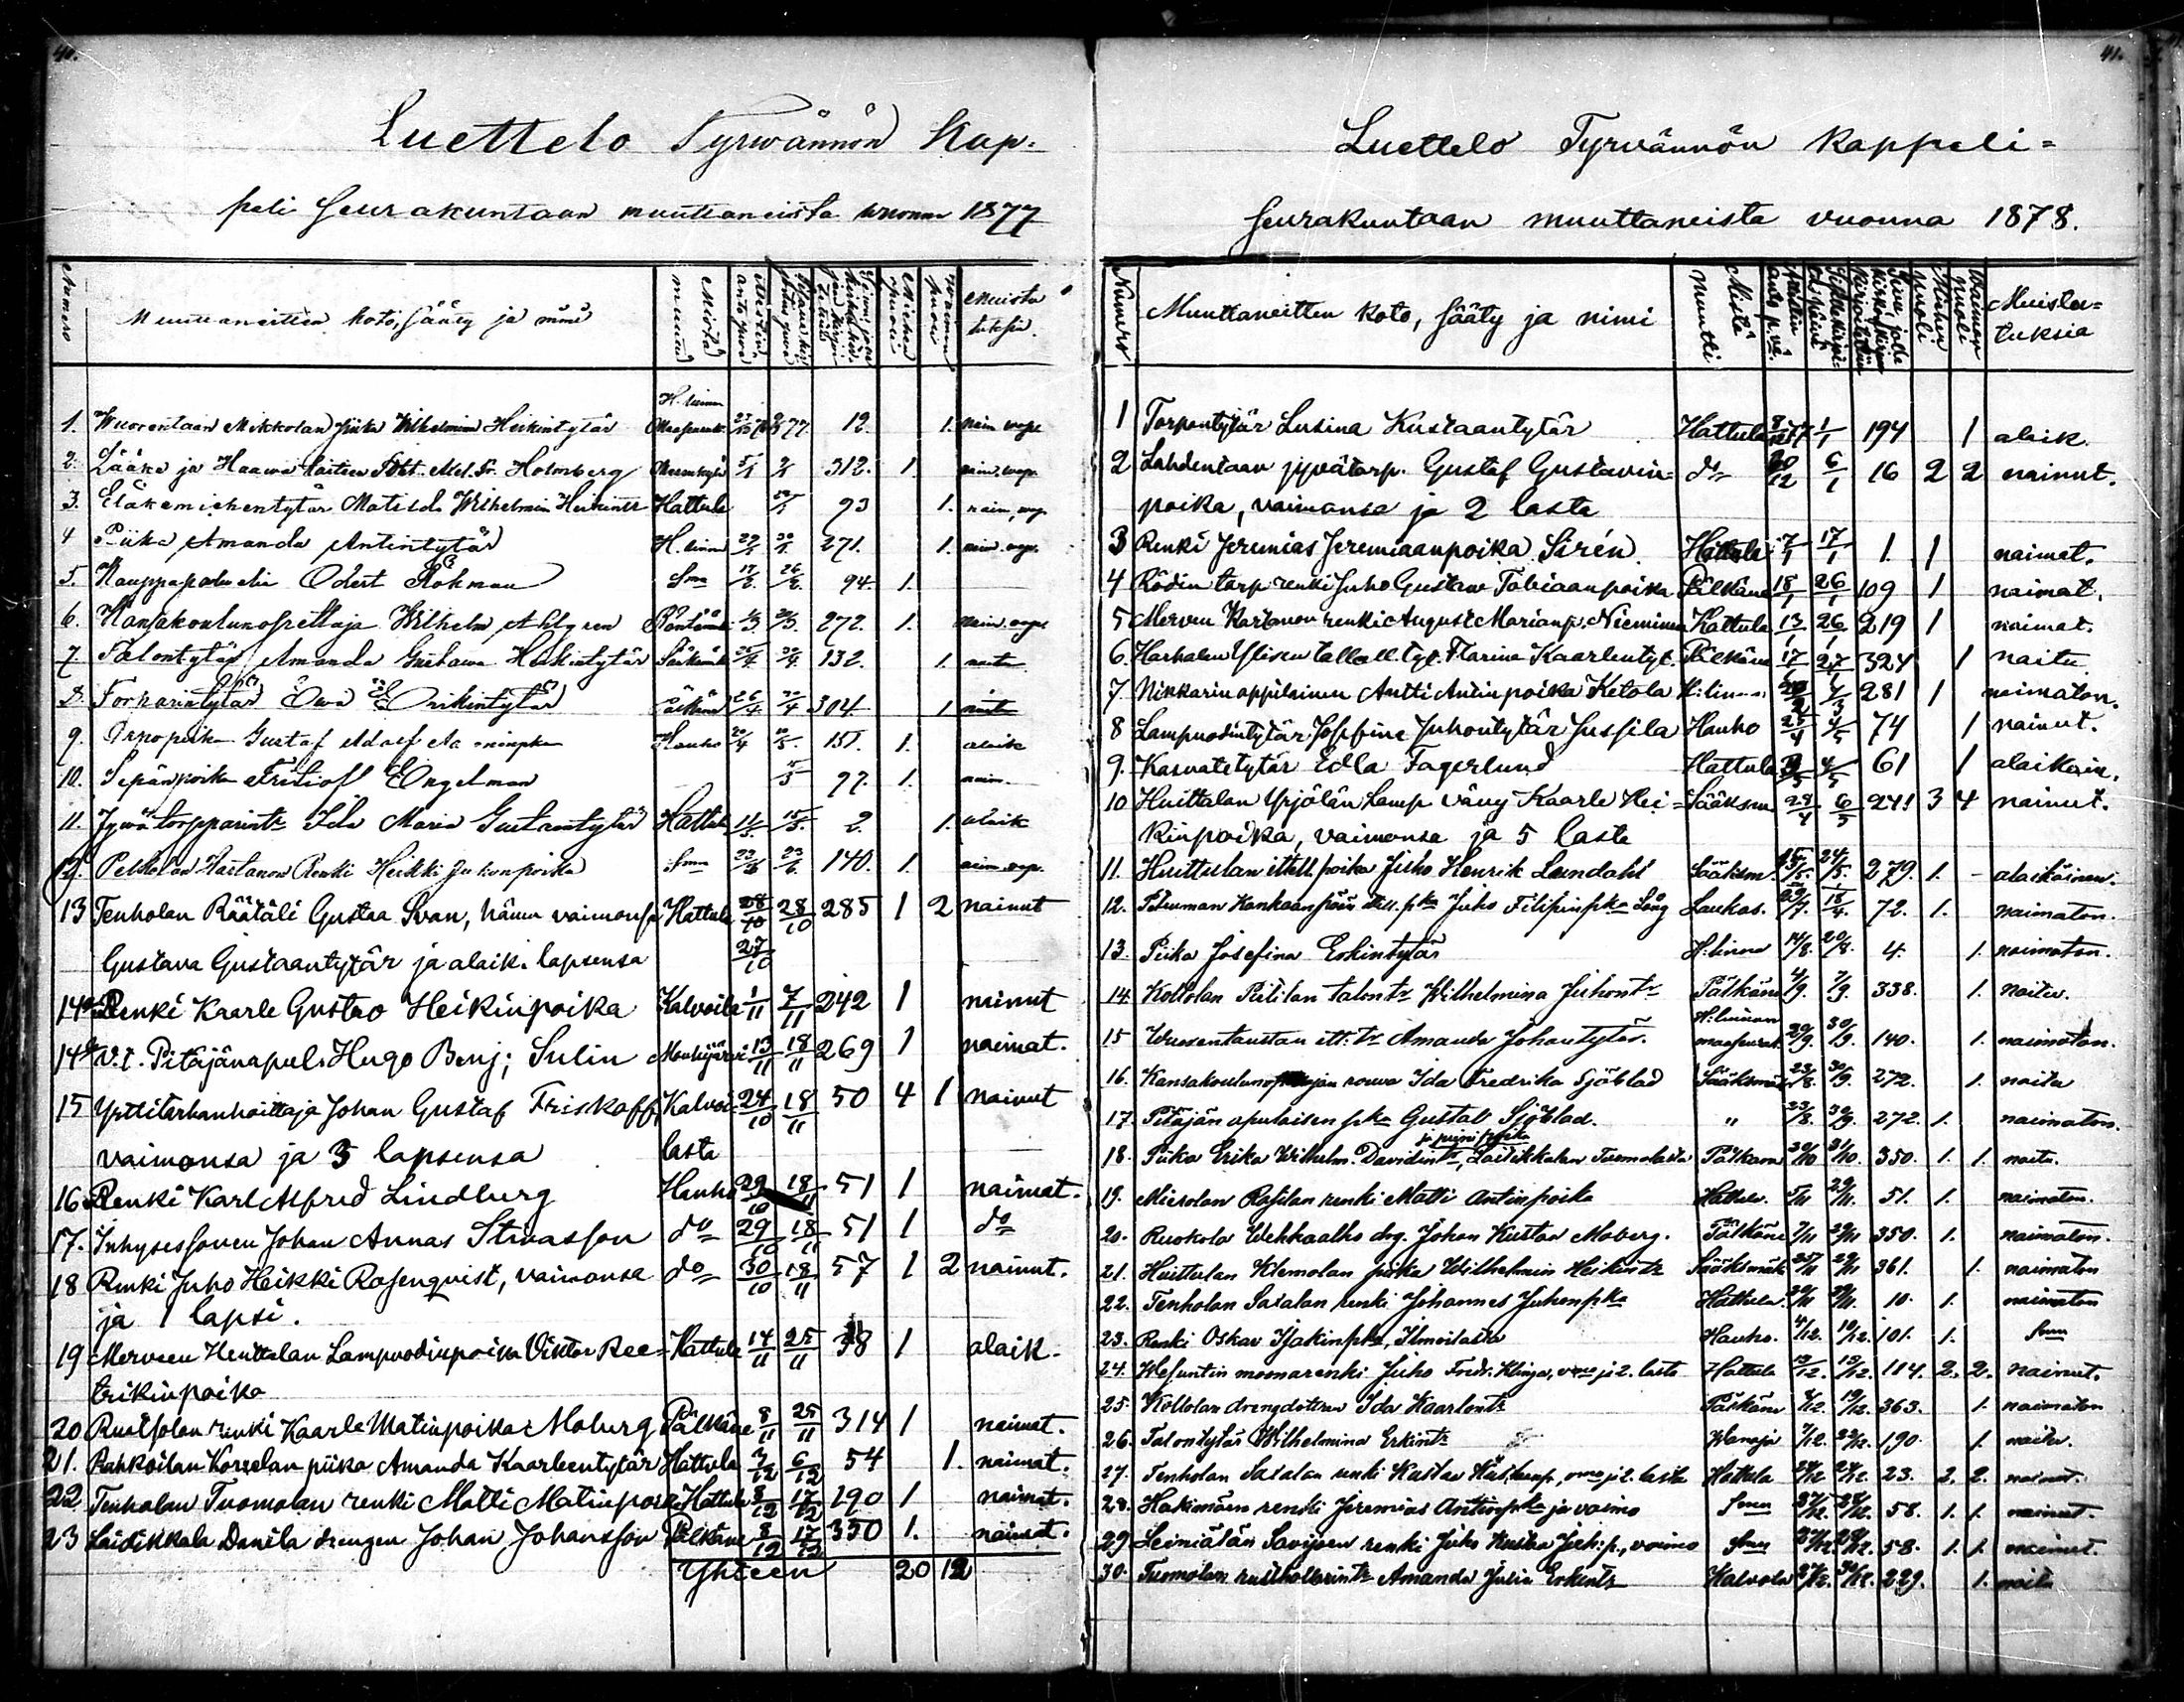 40.
Luettelo Tyrwännön Kap-
peli Seurakuntaan muuttaneista wuonna 1877
Numero Muuttaneitten koto, sääty ja nimi Mistä muutti Miehen puoli Waimon puoli Muistutuksia.
H. linnan
1. Wuorentaan Mikkolan piika Wilhelmina Heikintytär Maaseurak. 77 12. 1. naim. wap.
2. Lääke ja Haawa Holmberg 5/1 312. 1. naim. wap.
3. Eläkemiehentytär Matilda Wilhelmina Heikintr Hattula 93 1. naim. wap.
4 Piika Amanda Antintytär H. linna 271. 1. naim. wap.
5. Kauppapalvelia Robert Ström Smn 17/2 26/2 94. 1.
6. Kansakoulunopettaja Wilhelm Ahlgren 272. 1. naim. wap.
7. Talontytär Amanda Gustawa Heikintytär Sääksmäki 132. 1. naitu
8. Torparintytär Ewa Erikintytär Pälkäne 26/4 304 1 naitu
9. Gustaf Adolf Hauho 151. 1. alaik
10. Sepänpoika Fritiof Engelman 97. 1. naim.
11. Jywätorpparintr Ida Maria Gustawintytär Hattula 15/5. 2. 1. alaik
12. Pekkolan Kartanon Renki Heikki Juhonpoika Smn 23/6 23/6. 140. 1. naim. wap.
13 Tenholan Räätäli Gustaa Svan, hänen vaimonsa Hattula 28/10 28/10 285 1 2 nainut
Gustava Gustaantytär ja alaik. lapsensa 27/10
14a Renki Kaarle Gustav Heikinpoika Kalvoila 1/11 7/11 242 1 nainut
14b v.t. Pitäjänapul. Hugo Benj; Sulin Mouhijärvi 13/11 18/11 269 1 naimat.
15 Yrttitarhanhoittaja Johan Gustaf Friskoff, Kalvoi- 24/10 18/11 50 4 1 nainut
vaimonsa ja 3 lapsensa lasta
16 Renki Karl Alfred Lindberg Hauho 29/10 18/11 51 1 naimat.
17. Inhysessonen Johan Annas Stivasson do 29/10 18/11 51 1 do
18 Renki Juho Heikki Rosenqvist, vaimonsa do 30/10 18/11 57 1 2 nainut.
ja 1 lapsi.
19 Merveen Henttalan Lampuodinpoika Viktor Ree- Hattula 14/11 25/11 38 1 alaik.
trikinpoika
20 Ruotsolan renki Kaarle Matinpoika Moberg Pälkäne 8/11 25/11 314 1 naimat.
21. Rahkoilan Korvelan piika Amanda Kaarleentytär Hattula 3/12 6/12 54 1. naimat.
22. Tenholan Tuomolan renki Matti Matinpoika Hattula 8/12 17/12 190 1 naimat.
23 Laidikkala Danila drengen Johan Johansson Pälkäne 8/12 17/12 350 1. naimat.
Yhteen 20 12
41.
Luettelo Tyrvännön kappeli=
seurakuntaan muuttaneista vuonna 1878.
Numero Muuttaneitten koto, sääty ja nimi Mistä muutti Miehen puoli Waimon puoli Muistutuksia
1 Torpantytär Lusina Kustaantytär Hattula 1/1 194 1 alaik.
2 Lahdentaan jyvätorp. Gustaf Gustavin= do 20/12 6/1 16 2 2 nainut.
poika, vaimonsa ja 2 lasta
3 Renki Jeremias Jeremiaanpoika Sirén Hattula 7/1 17/1 1 1 naimat.
4 Rödin torp renki Juho Gustaw Tobiaanpoika Pälkäne 18/1 26/1 109 1 naimat.
5 Merven Kartanon renki August Marianp. Nieminen Hattula 13 26/1 219 1 naimat.
6. Harhalan Ylisen talall. tyt. Flarina Kaarlentyt. Pälkäne 17 27 324 1 naitu
7. Nikkarinoppilainen Antti Antinpoika Ketola H:linna 1/3 281 1 naimaton.
8 Lampuodintytär Josefina Juhontytär Jussila Hauho 25/4 4/5 74 1 nainut.
9. Kasvatetytär Edla Fagerlund Hattula 3/5 4/5 61 1 alaikäin.
10 Huittulan Yrjölän Lamp vävy Kaarle Hei= Sääksm. 28/4 6/5 241 3 4 nainut.
kinpoika, vaimonsa ja 5 lasta
11. Huittulan ittell. poika Juho Henrik Lundahl Sääksm. 15/5. 24/5. 279. 1. - alaikäinen.
12. Kankaanpään ittell. pka Juho Filipinpka Lång Laukas. 72. 1. naimaton.
13. Piika Josefina Erkintytär H:linna 14/8. 20/8. 4. 1. naimaton.
14. Kokkolan Pietilän talontr Wilhelmina Juhontr Pälkäne 4/9. 7/9. 338. 1. naitu.
H:linnan
15 Wuorentaustan itt. tr Amanda Johantytär. maaseurak. 29/9. 30/9. 140. 1. naimaton.
16. Kansakoulunopettajan rouva Ida Fredrika Sjöblad Sääksmäki 23/8. 30/9. 272. 1. naitu
17. Pitäjän apulaisen pka Gustav Sjöblad. " 23/8. 30/9. 272. 1. naimaton.
18. Piika Erika Wilhelm. Davidintr, Laidikkalan Tuomolasta Pälkäne 30/10 31/10. 350. 1. 1. naitu.
19. Mierolan Rasilan renki Matti Antinpoika Hattula. 5/11 29/11. 51. 1. naimaton.
20. Ruokola Wehkaalho drg. Johan Kustav Moberg. Pälkäne 7/11 29/11 350. 1. naimaton.
21. Huittulan Klemolan piika Wilhelmin Heikintr Sääksmäki 25/11 29/11 361. 1. naimaton
22. Tenholan Saialan renki Johannes Juhonpka Hattula. 29/11 29/11. 10. 1. naimaton
23. Renki Oskar Isakinpka, Ilmoilasta Hauho. 4/12. 10/12. 101. 1. Smn
24. Wesuntin moonarenki Juho Fredr. Klinga, vmo ja 2. lasta Hattula 13/12. 19/12. 114. 2. 2. nainut.
25. Kokkolan drengdottren Ida Kaarlontr Pälkäne 9/12. 19/12. 363. 1. naimaton
26. Talontytär Wilhelmina Erkintr Wanaja 7/12. 22/12. 190. 1. naitu.
27. Tenholan Saialan renki Kustav ja 2. lasta Hattula 23. 2. 2. nainut.
28. Hakimäen renki Jeremias Antinpka ja vaimo Smn 27/12. 28/12. 58. 1. 1. nainut.
29. Leiniälän Savijoen renki Juho Kustaa Juh:p., vaimo Smn 27/12 28/12. 58. 1. 1. nainut.
30. Tuomolan rusthollarintr Amanda Julia Erkintr Kalvola 27/12. 229. 1. naitu